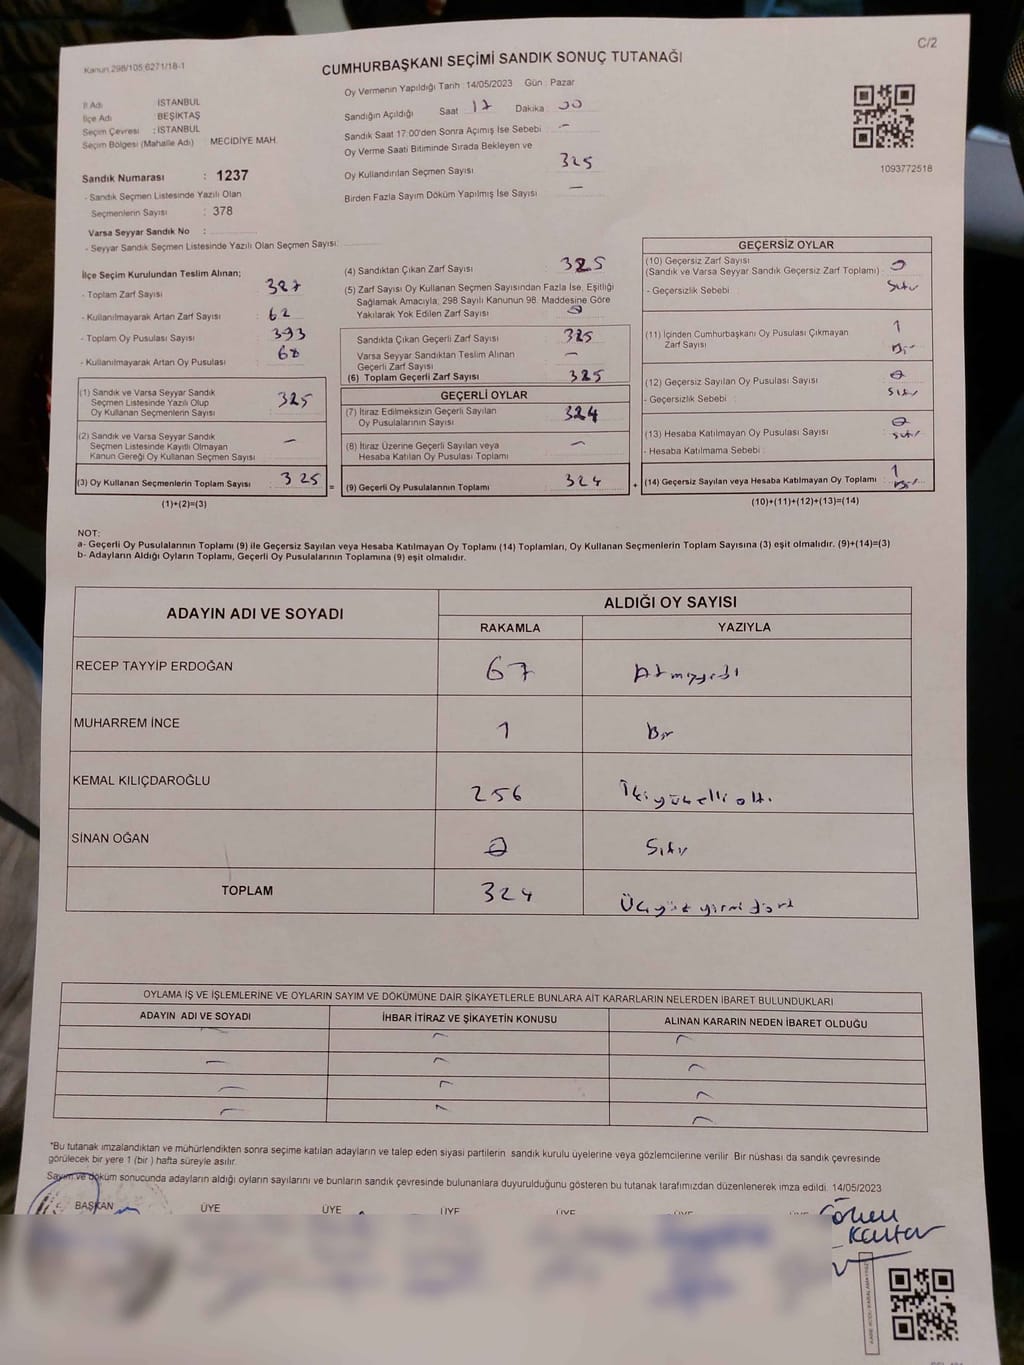 Kanun 298/105 6271/18-1
C/2
CUMHURBAŞKANI SEÇİMİ SANDIK SONUÇ TUTANAĞI
Oy Vermenin Yapıldığı Tarih : 14/05/2023 Gün : Pazar
İl Adı İSTANBUL
İlçe Adı BEŞİKTAŞ
Seçim Çevresi : İSTANBUL
Seçim Bölgesi (Mahalle Adı) MECİDİYE MAH.
Sandık Numarası : 1237
- Sandık Seçmen Listesinde Yazılı Olan
Seçmenlerin Sayısı : 378
Varsa Seyyar Sandık No :
- Seyyar Sandık Seçmen Listesinde Yazılı Olan Seçmen Sayısı:
Sandığın Açıldığı Saat 17 Dakika 00
Sandık Saat 17:00'den Sonra Açımış İse Sebebi : -
Oy Verme Saati Bitiminde Sırada Bekleyen ve
Oy Kullandırılan Seçmen Sayısı 325
Birden Fazla Sayım Döküm Yapılmış İse Sayısı -
1093772518
İlçe Seçim Kurulundan Teslim Alınan;
- Toplam Zarf Sayısı 387
- Kullanılmayarak Artan Zarf Sayısı : 62
- Toplam Oy Pusulası Sayısı : 393
- Kullanılmayarak Artan Oy Pusulası : 68
(1) Sandık ve Varsa Seyyar Sandık
Seçmen Listesinde Yazılı Olup
Oy Kullanan Seçmenlerin Sayısı 325
(2) Sandık ve Varsa Seyyar Sandık
Seçmen Listesinde Kayıtlı Olmayan
Kanun Gereği Oy Kullanan Seçmen Sayısı -
(3) Oy Kullanan Seçmenlerin Toplam Sayısı 325
(1)+(2)=(3)
(4) Sandıktan Çıkan Zarf Sayısı 325
(5) Zarf Sayısı Oy Kullanan Seçmen Sayısından Fazla İse, Eşitliği
Sağlamak Amacıyla, 298 Sayılı Kanunun 98. Maddesine Göre
Yakılarak Yok Edilen Zarf Sayısı : 0
Sandıkta Çıkan Geçerli Zarf Sayısı 325
Varsa Seyyar Sandıktan Teslim Alınan
Geçerli Zarf Sayısı -
(6) Toplam Geçerli Zarf Sayısı 325
=
GEÇERLİ OYLAR
(7) İtiraz Edilmeksizin Geçerli Sayılan
Oy Pusulalarının Sayısı 324
(8) İtiraz Üzerine Geçerli Sayılan veya
Hesaba Katılan Oy Pusulası Toplamı -
(9) Geçerli Oy Pusulalarının Toplamı 324
+
GEÇERSİZ OYLAR
(10) Geçersiz Zarf Sayısı
(Sandık ve Varsa Seyyar Sandık Geçersiz Zarf Toplamı) 0
- Geçersizlik Sebebi Sıfır
(11) İçinden Cumhurbaşkanı Oy Pusulası Çıkmayan
Zarf Sayısı 1
Bir
(12) Geçersiz Sayılan Oy Pusulası Sayısı : 0
- Geçersizlik Sebebi Sıfır
(13) Hesaba Katılmayan Oy Pusulası Sayısı 0
Sıfır
- Hesaba Katılmama Sebebi
(14) Geçersiz Sayılan veya Hesaba Katılmayan Oy Toplamı : 1
Bir
(10)+(11)+(12)+(13)=(14)
NOT:
a- Geçerli Oy Pusulalarının Toplamı (9) ile Geçersiz Sayılan veya Hesaba Katılmayan Oy Toplamı (14) Toplamları, Oy Kullanan Seçmenlerin Toplam Sayısına (3) eşit olmalıdır. (9)+(14)=(3)
b- Adayların Aldığı Oyların Toplamı, Geçerli Oy Pusulalarının Toplamına (9) eşit olmalıdır.
ADAYIN ADI VE SOYADI ALDIĞI OY SAYISI
RAKAMLA YAZIYLA
RECEP TAYYİP ERDOĞAN 67 Atmışyedi
MUHARREM İNCE 1 Bir
KEMAL KILIÇDAROĞLU 256 İkiyüzelli altı
SİNAN OĞAN 0 Sıfır
TOPLAM 324 Üçyüz yirmi dört
OYLAMA İŞ VE İŞLEMLERİNE VE OYLARIN SAYIM VE DÖKÜMÜNE DAİR ŞİKAYETLERLE BUNLARA AİT KARARLARIN NELERDEN İBARET BULUNDUKLARI
ADAYIN ADI VE SOYADI İHBAR İTİRAZ VE ŞİKAYETİN KONUSU ALINAN KARARIN NEDEN İBARET OLDUĞU
*Bu tutanak imzalandıktan ve mühürlendikten sonra seçime katılan adayların ve talep eden siyasi partilerin sandık kurulu üyelerine veya gözlemcilerine verilir Bir nüshası da sandık çevresinde
görülecek bir yere 1 (bir ) hafta süreyle asılır.
Sayım ve döküm sonucunda adayların aldığı oyların sayılarını ve bunların sandık çevresinde bulunanlara duyurulduğunu gösteren bu tutanak tarafımızdan düzenlenerek imza edildi. 14/05/2023
BAŞKAN ÜYE ÜYE ÜYE ÜYE